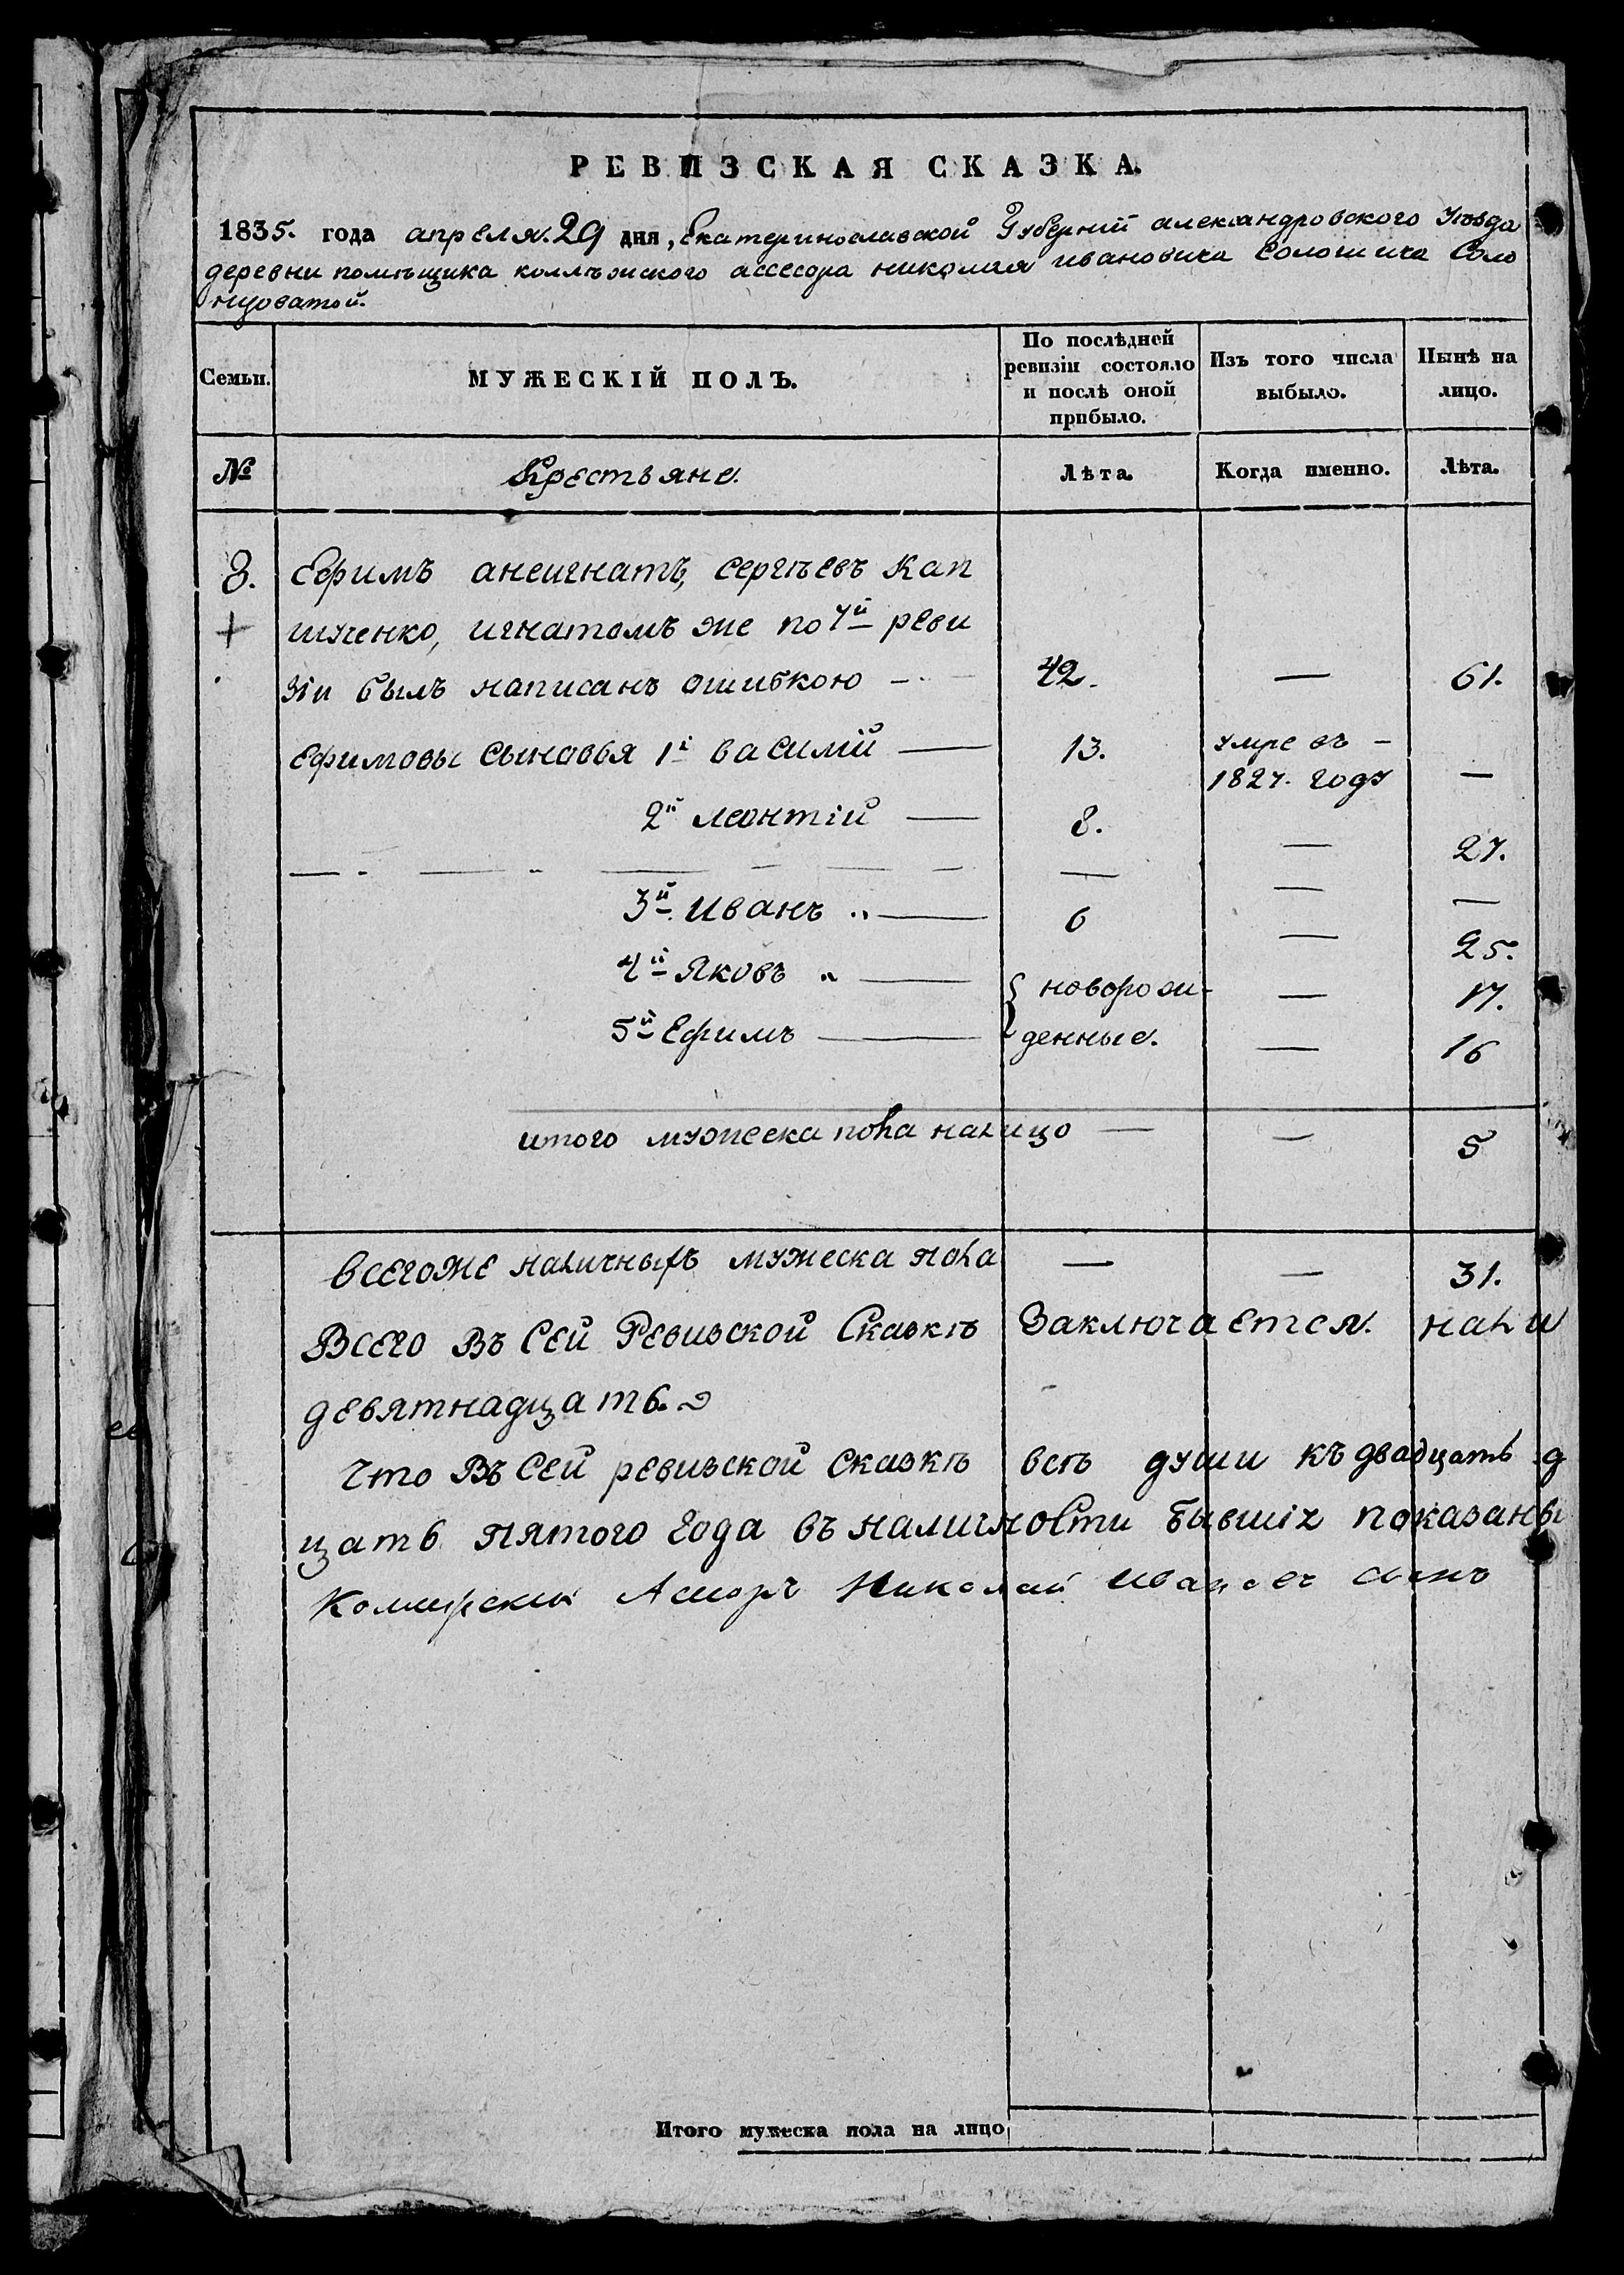 РЕВИЗСКАЯ СКАЗКА.
1835. года апреля. 29 дня, Екатеринославской Губерніи александровского Уѣзда
деревни помѣщика коллѣжского ассесора николая ивановича Солошича Соло
нцоватой.
Семьи. МУЖЕСКІЙ ПОЛЪ. По послѣдней ревизіи состояло и послѣ оной прибыло. Изъ того числа выбыло. Нынѣ на лицо.
№ Крестьяне. Лѣта. Когда именно. Лѣта.
8. Ефимъ анеигнатъ, сергѣевъ Кап
+ шученко, игнатомъ же по 7й реви
зіи былъ написанъ ошибкою — 42. — 61.
Ефимовы сыновья 1й василій — 13. умре въ —
1827. году —
2й леонтій — 8. — 27.
3й Иванъ „ — 6 — 25.
4й Яковъ „ — новорож- — 17.
5й Ефимъ — денные. — 16
итого мужеска пола налицо — — 5
всегоже наличныхъ мужеска пола — — 31.
Всего Въ Сей Ревизской Сказкѣ Заключается. нали
девятнадцать.
Что Въ Сей ревизской сказкѣ всѣ души къ двадцать д
цать пятого года въ наличности бывшіх показаны
Николай Ивановъ сынъ
Итого мужеска пола на лицо